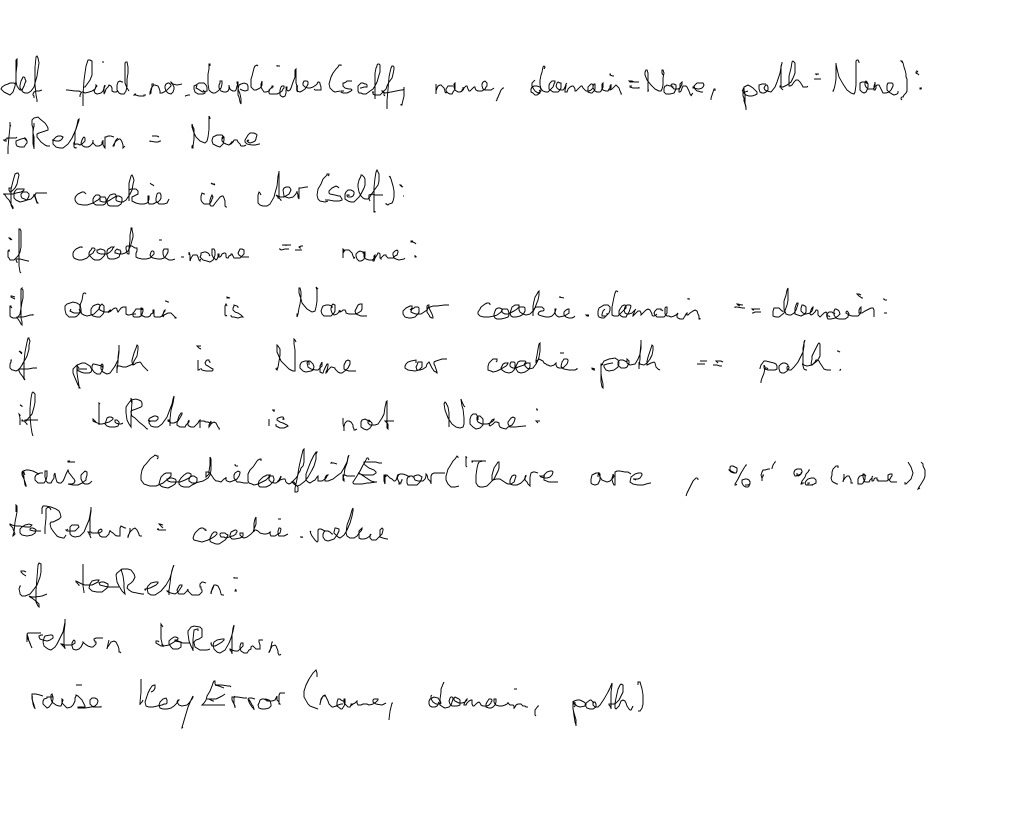 def find_no_duplicates(self, name, domain=None, path=None):
toReturn = None
for cookie in iter(self):
if cookie.name == name:
if domain is None or cookie.domain == domain:
if path is None or cookie.path == path:
if toReturn is not None:
raise CookieConflictError('There are , %r' % (name))
toReturn = cookie.value
if toReturn:
return toReturn
raise KeyError (name, domain, path)